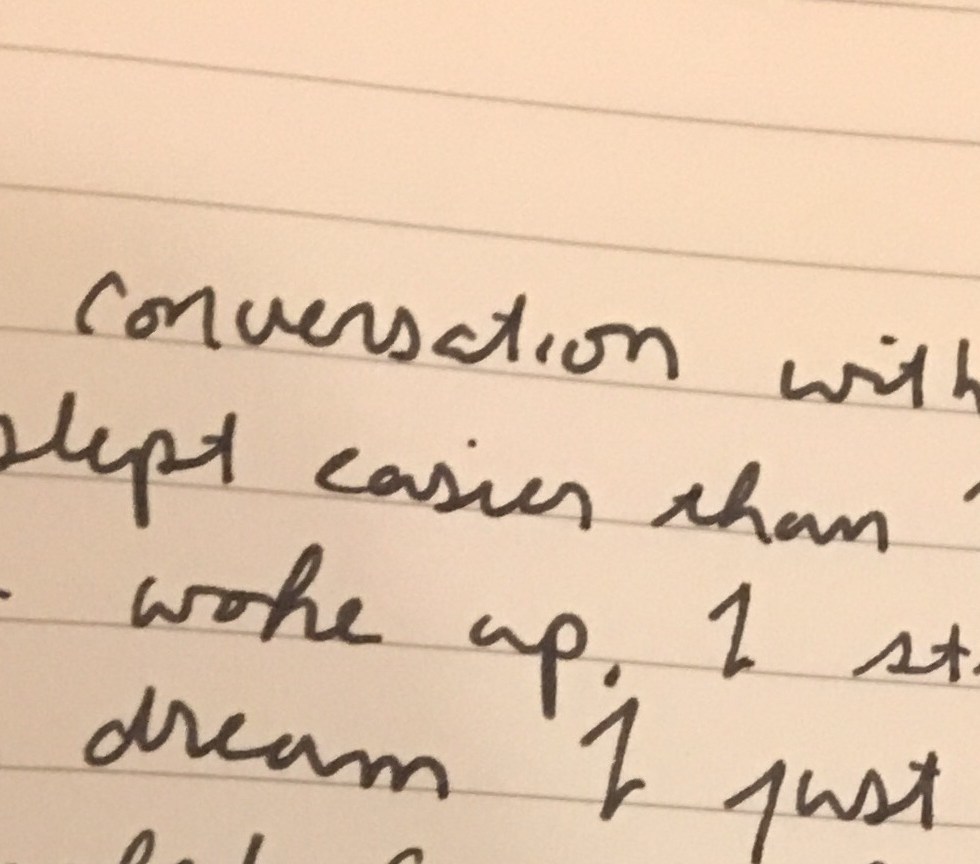 conversation with
slept easier than
woke up. I st
dream I just